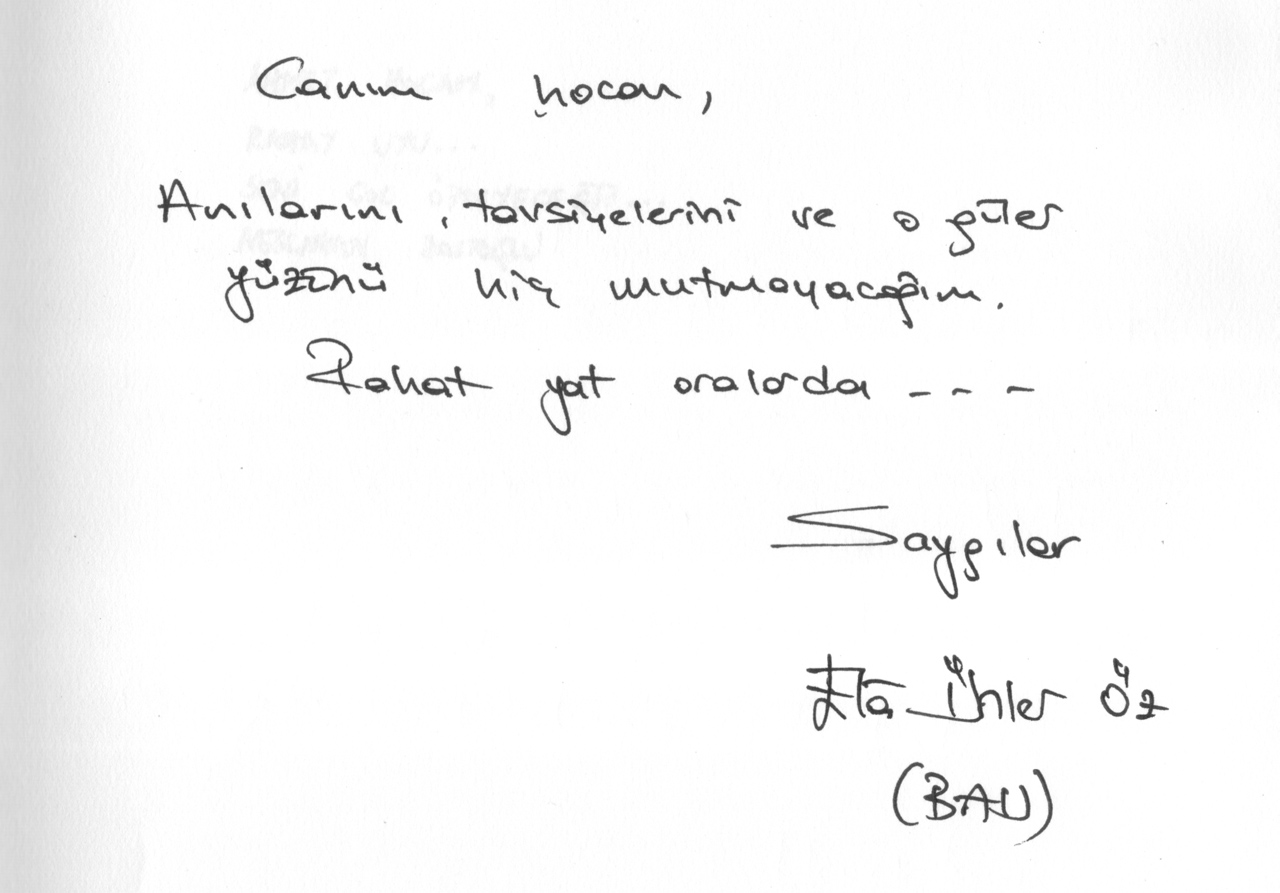 Canım hocam,
Anılarını, tavsiyelerini ve o güler
yüzünü hiç unutmayacağım.
Rahat yat oralarda - - -
Saygılar
Öz
(BAU)